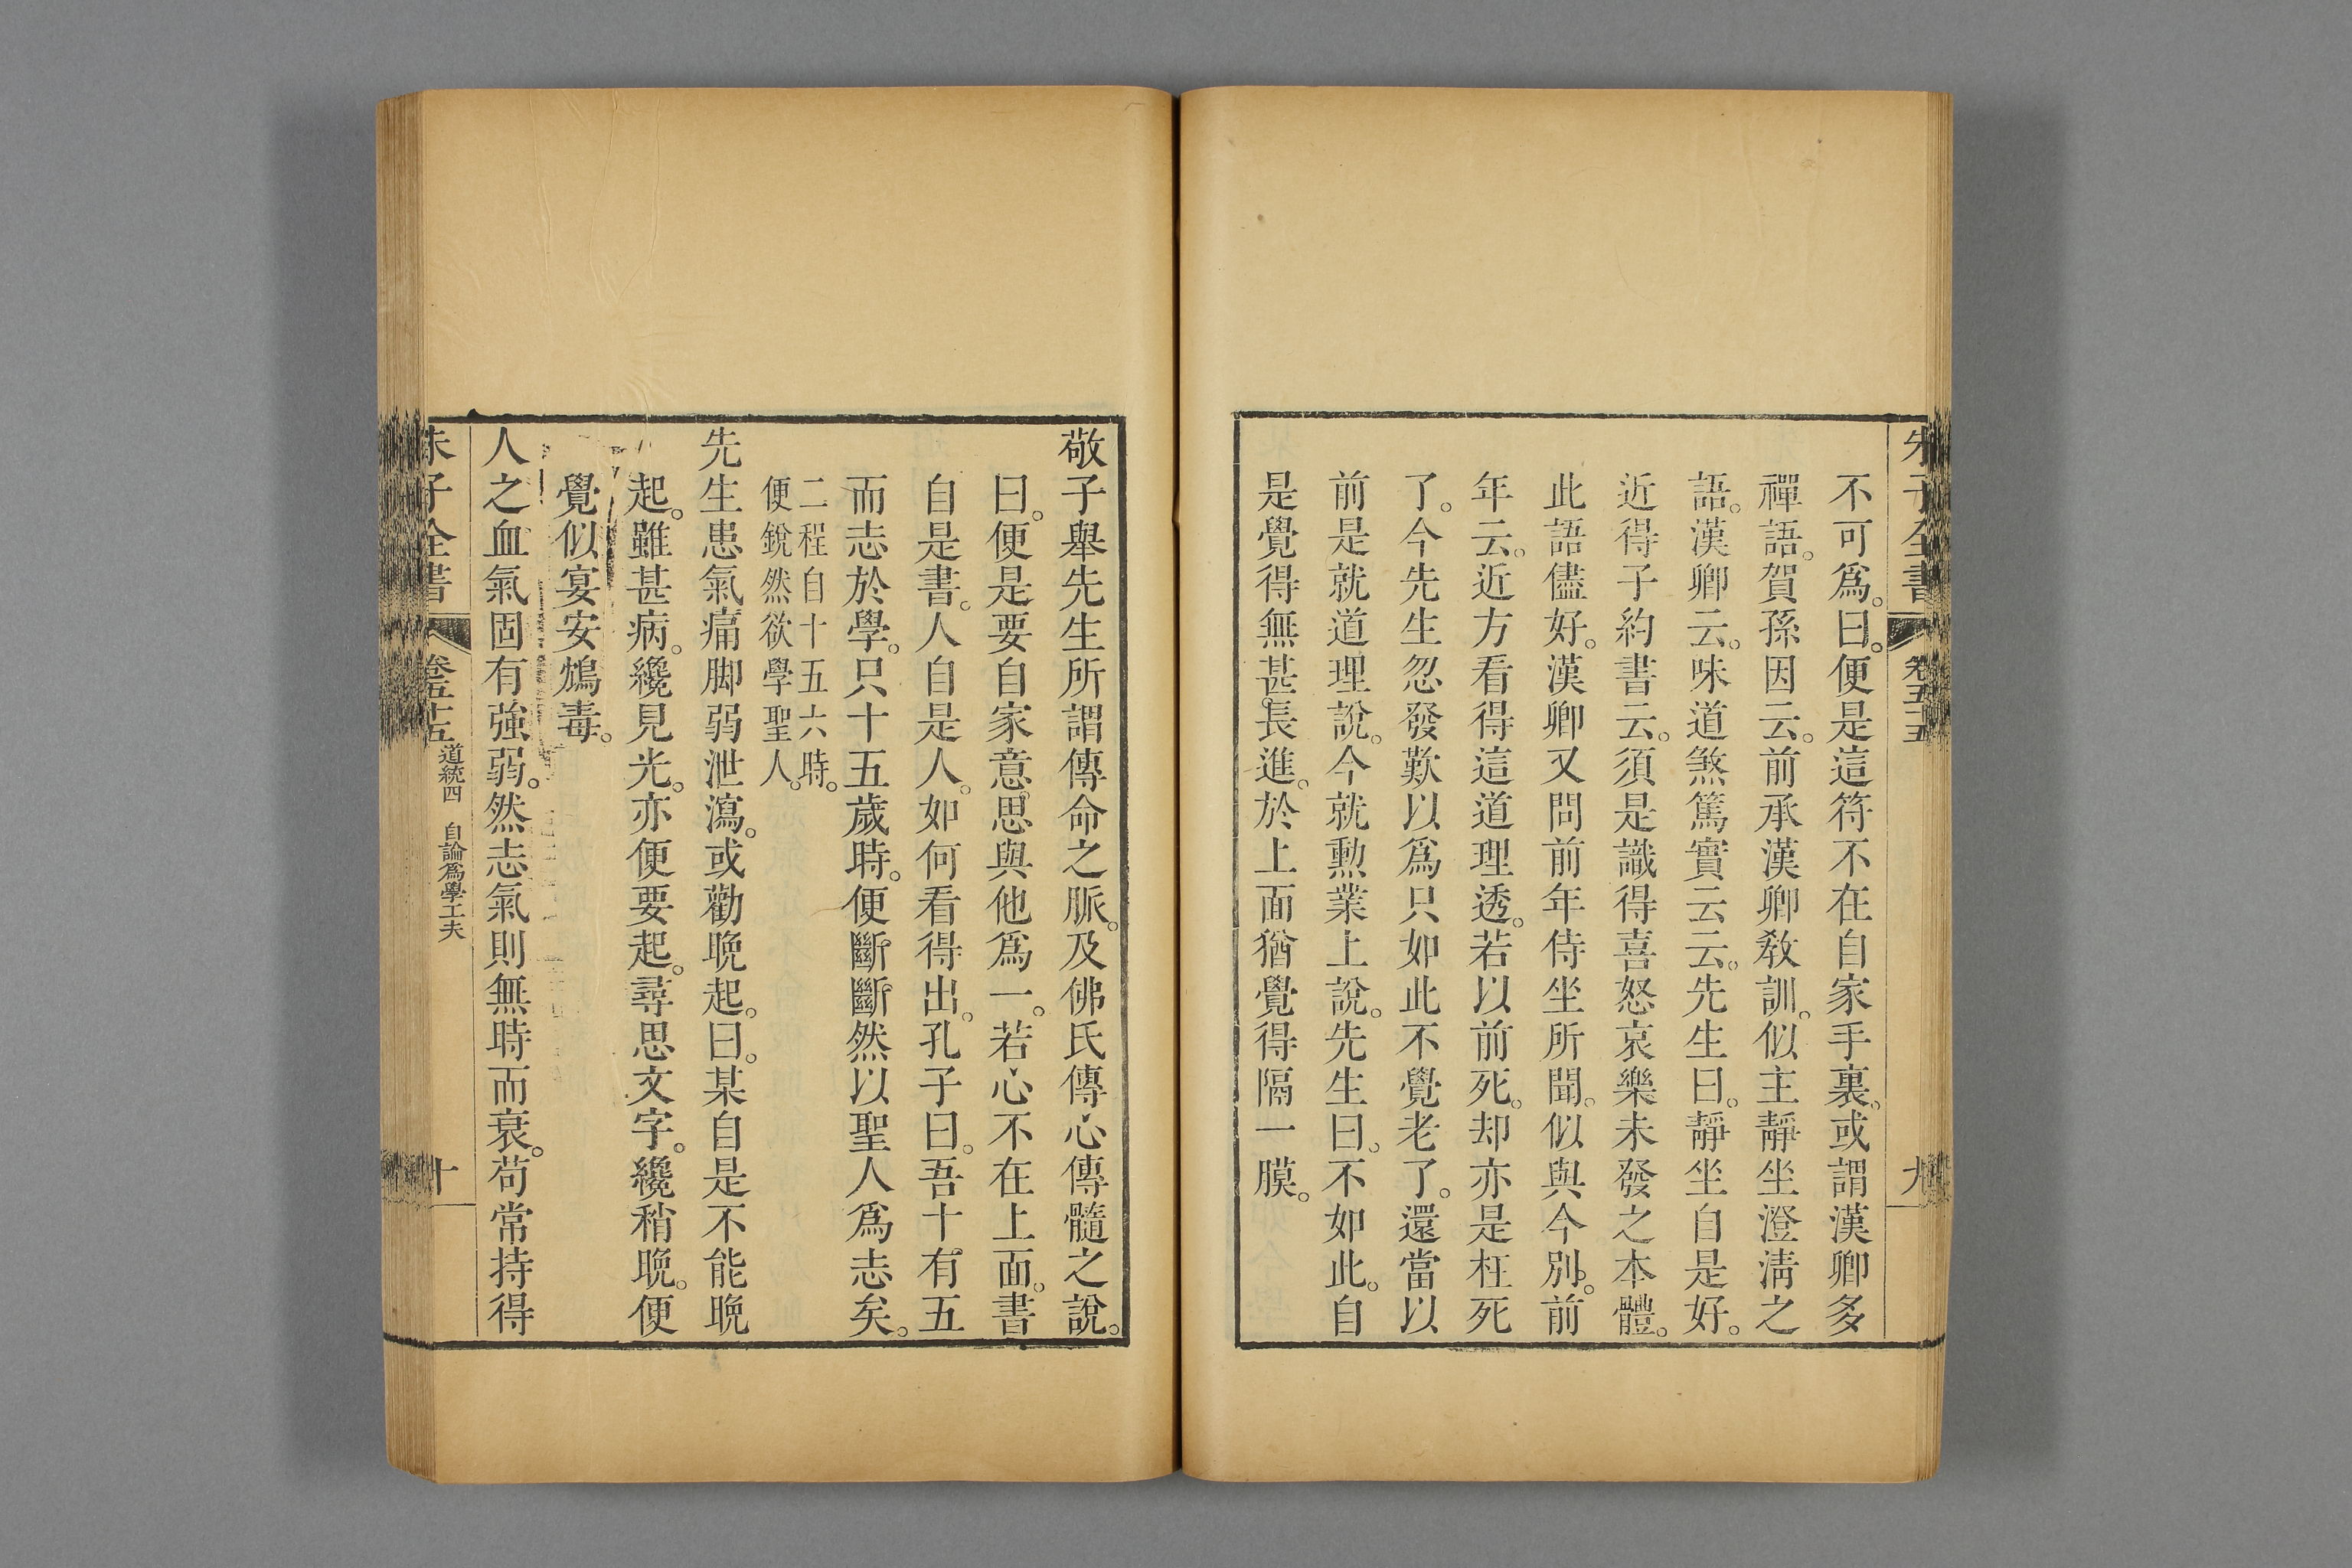 朱子全書
卷五十五
九
不可爲。曰。便是這符不在自家手裏。或謂漢卿多
禪語。賀孫因云。前承漢卿教訓。似主靜坐澄淸之
語。漢卿云。味道煞篤實云云。先生曰。靜坐自是好。
近得子約書云。須是識得喜怒哀樂未發之本體。
此語儘好。漢卿又問前年侍坐所聞。似與今別。前
年云。近方看得這道理透。若以前死。却亦是枉死
了。今先生忽發歎以爲只如此不覺老了。還當以
前是就道理說。今就勳業上說。先生曰。不如此。自
是覺得無甚。長進。於上面猶覺得隔一膜。
敬子舉先生所謂傳命之脈。及佛氏傳心傳髓之說。
曰。便是要自家意思與他爲一。若心不在上面。書
自是書。人自是人。如何看得出。孔子曰。吾十有五
而志於學。只十五歲時。便斷斷然以聖人爲志矣。
二程自十五六時。
便銳然欲學聖人。
先生患氣痛脚弱泄瀉。或勸晩起。曰。某自是不能晩
起。雖甚病。纔見光。亦便要起。尋思文字。纔稍晩。便
覺似宴安鴆毒。
人之血氣固有強弱。然志氣則無時而衰。苟常持得
朱子全書
卷五十五
道統四 自論爲學工夫
十